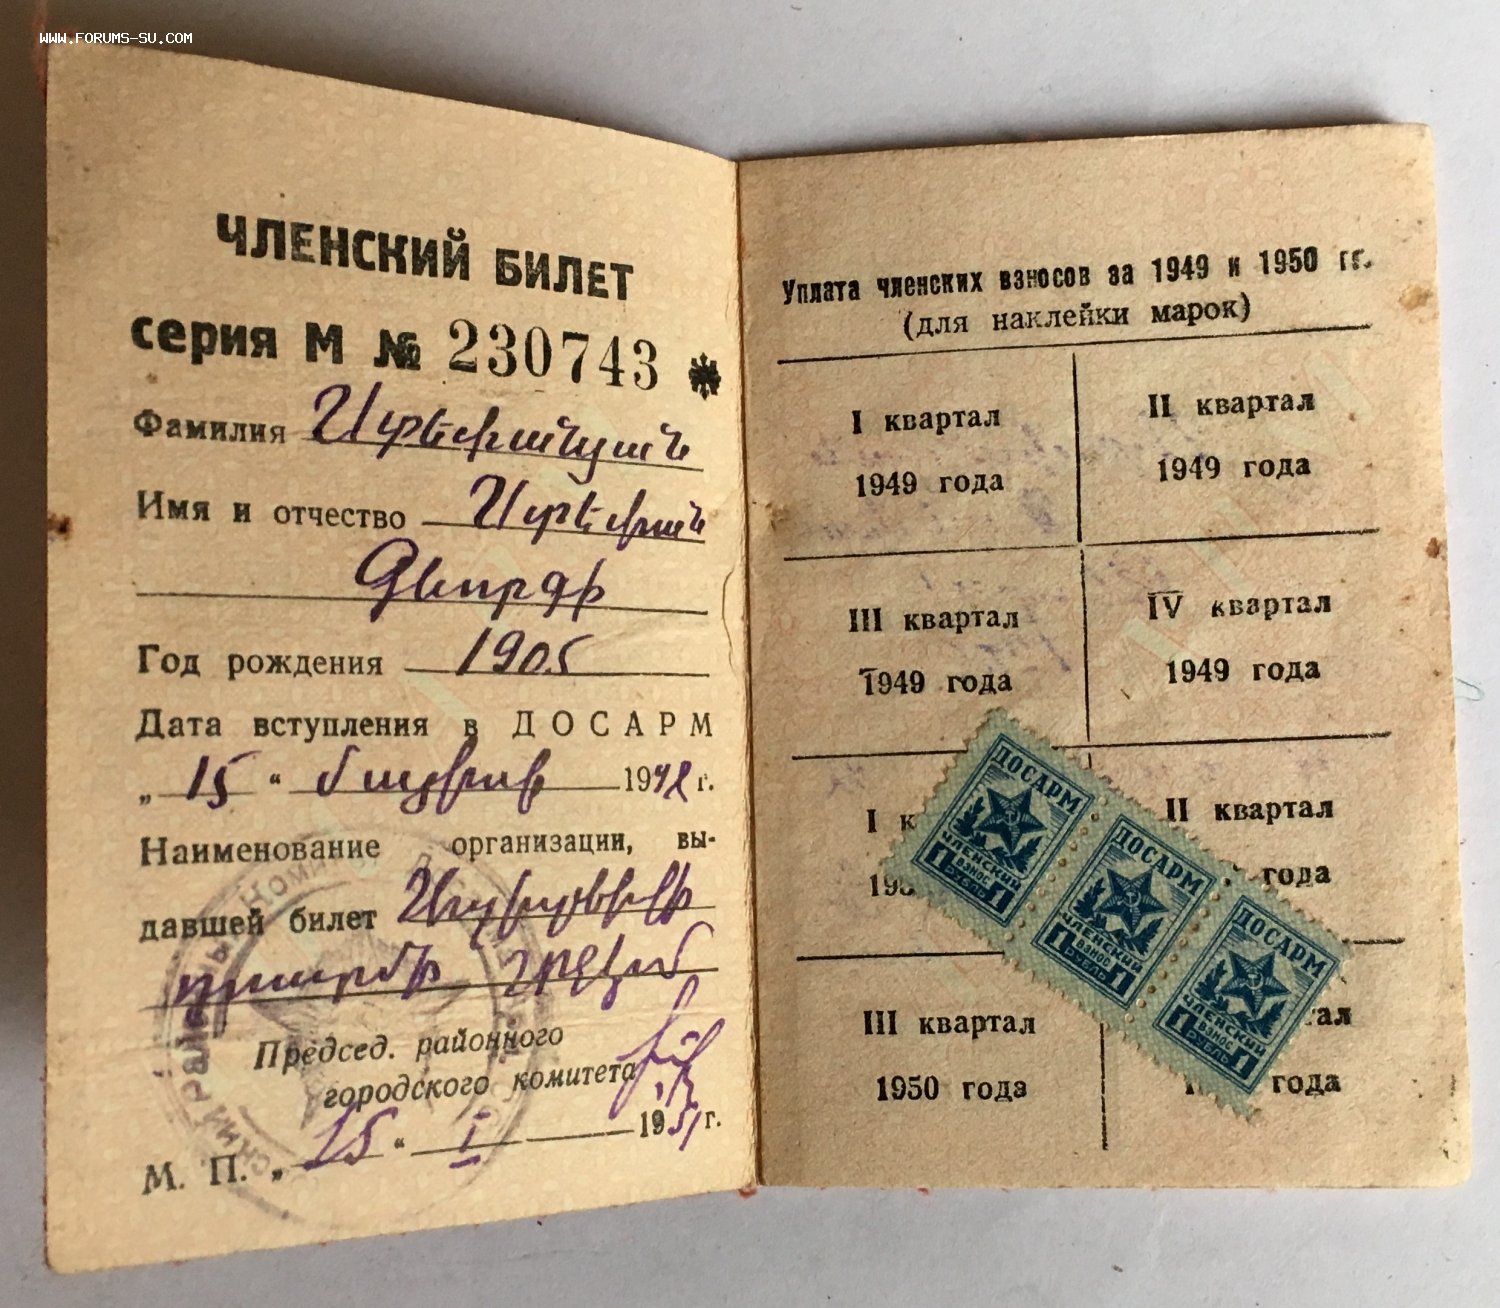 WWW.FORUMS-SU.COM
ЧЛЕНСКИЙ БИЛЕТ
серия М № 230743 *
Фамилия Ստեփանյան
Имя и отчество Ստեփան
Գևորգի
Год рождения 1905
Дата вступления в ДОСАРМ
„ 15 “ 194 г.
Наименование организации, вы-
давшей билет
Председ. районного
городского комитета
М. П. „ 15 “ I 1951 г.
Уплата членских взносов за 1949 и 1950 гг.
(для наклейки марок)
I квартал
1949 года
II квартал
1949 года
III квартал
1949 года
IV квартал
1949 года
I к
195
II квартал
года
III квартал
1950 года
тал
1 года
ДОСАРМ
ЧЛЕНСКИЙ
1 ВЗНОС 1
РУБЛЬ
ДОСАРМ
ЧЛЕНСКИЙ
1 ВЗНОС 1
РУБЛЬ
ДОСАРМ
ЧЛЕНСКИЙ
1 ВЗНОС 1
РУБЛЬ